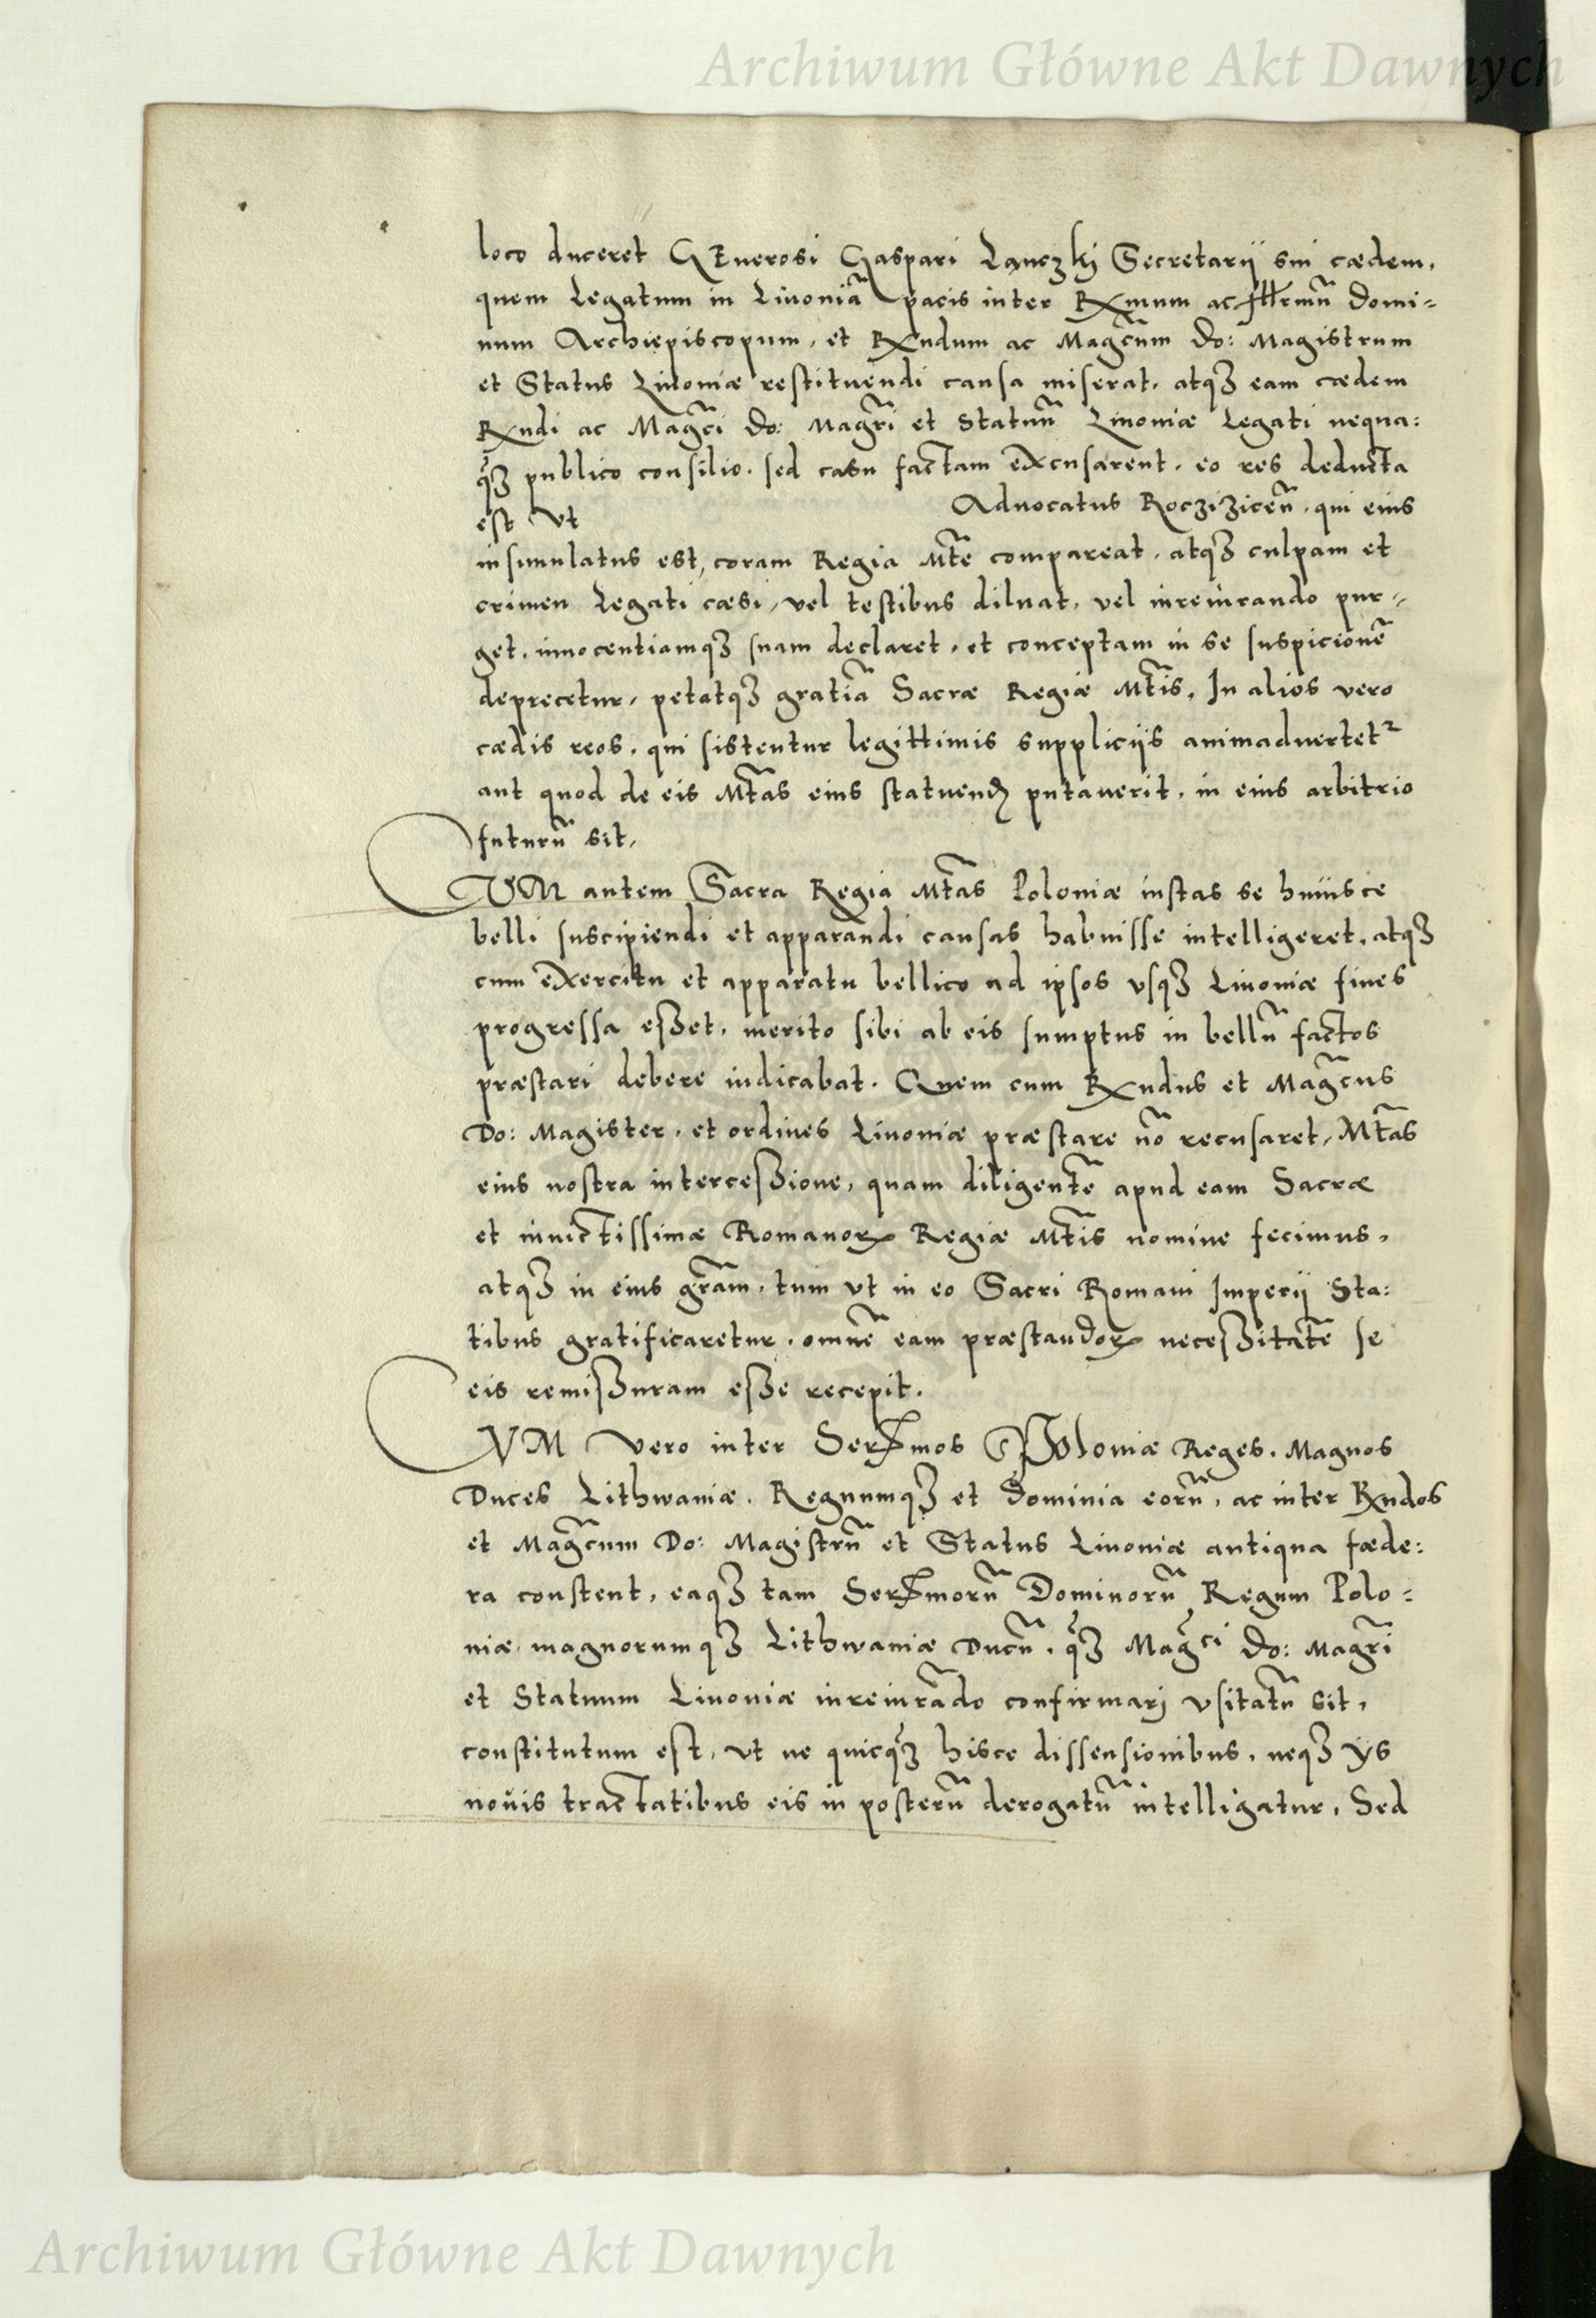 Archiwum Główne Akt Dawnych
loco duceret GEnerosi Gaspari Lanczkj Secretarij sui cædem,
quem Legatum in Liuoniā pacis inter Rxmum ac Illrmū Domi=
num Archiepiscopum, et Rxndum ac Magc̄um Do: Magistrum
et Status Liuoniæ restituendi causa miserat, atqʒ eam cædem
Rxndi ac Magc̄i Do: Magrī et Statuū Liuoniæ Legati nequa:
qʒ̄ publico consilio, sed casu factam excusarent, eo res deducta
est Vt Aduocatus Roczizicen̄, qui eius
insimulatus est, coram Regia Mtē compareat, atqʒ culpam et
crimen Legati cæsi, vel testibus diluat, vel iureiurando pur=
get, innocentiamqʒ suam declaret, et conceptam in se suspicionē
deprecetur, petatqʒ gratiā Sacræ Regiæ Mtīs, In alios vero
cædis reos, qui sistentur legittimis supplicijs animaduertetr
aut quod de eis Mtās eius statuendū putauerit, in eius arbitrio
futurū sit,
CVM autem Sacra Regia Mtās Poloniæ iustas se huiusce
belli suscipiendi et apparandi causas habuisse intelligeret, atqʒ
cum exercitu et apparatu bellico ad ipsos vsqʒ Liuoniæ fines
progressa eßet, merito sibi ab eis sumptus in bellū factos
præstari debere iudicabat. Quem cum Rxndus et Magc̄us
Do: Magister, et ordines Liuoniæ præstare nō recusaret, Mtās
eius nostra interceßione, quam diligentē apud eam Sacræ
et inuictissimæ Romanorꝝ Regiæ Mtīs nomine fecimus,
atqʒ in eius grām, tum vt in eo Sacri Romani Imperij Sta:
tibus gratificaretur, omnē eam præstandorꝝ neceßitatē se
eis remißuram eße recepit.
CVM Vero inter Serxmos Poloniæ Reges, Magnos
Duces Lithwaniæ, Regnumqʒ et Dominia eorū, ac inter Rxndos
et Magc̄um Do: Magistrū et Status Liuoniæ antiqua fæde:
ra constent, eaqʒ tam Serxmorū Dominorū Regum Polo=
niæ magnorumqʒ Lithwaniæ Ducū, qʒ̄ Magci Do: Magrī
et Statuum Liuoniæ iureiurādo confirmarj vsitatū sit,
constitutum est, vt ne quicqʒ̄ hisce dissensionibus, neqʒ ijs
nouis tractatibus eis in posterū derogatū intelligatur, Sed
Archiwum Główne Akt Dawnych